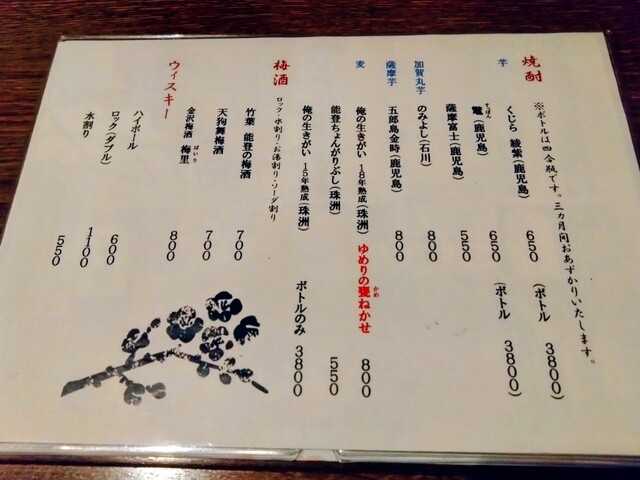 焼酎
※ボトルは四合瓶です。三カ月間おあずかりいたします。
芋
くじら 綾紫(鹿児島) 650 (ボトル 3800)
すっぽん
鼈(鹿児島) 650 (ボトル 3800)
薩摩富士(鹿児島) 550
加賀丸芋
のみよし(石川) 800
薩摩芋
五郎島金時(鹿児島) 800
麦
俺の生きがい 18年熟成(珠洲) ゆめりの甕ねかせ 800
かめ
能登ちょんがりぶし(珠洲) 550
俺の生きがい 15年熟成(珠洲) ボトルのみ 3800
梅酒
ロック・水割り・お湯割り・ソーダ割り
竹葉 能登の梅酒 700
天狗舞梅酒 700
金沢梅酒 梅里 800
ばいり
ウィスキー
ハイボール 600
ロック(ダブル) 1100
水割り 550